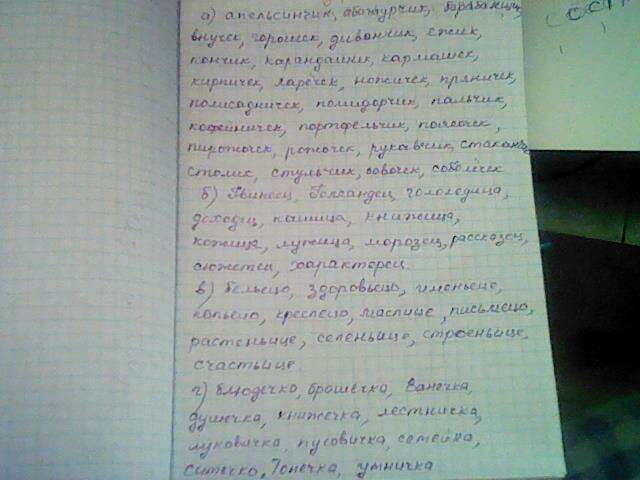 а) апельсинчик, абажурчик, барабанщик
внучек, горошек, диванчик, ёжик,
кончик, карандашик, кармашек,
кирпичек, ларечек, ножичек, пряничек,
полисадничек, помидорчик, пальчик,
кофейничек, портфельчик, поясочек,
пирожочек, рожочек, рукавчик, стаканчик
столик, стульчик, совочек, соболёчек
б) голландец, гололедица,
доходец, книжица,
кожица, лужица, морозец, рассказец,
сюжетец, характерец.
в) бельецо, здоровьецо, именьице,
копьецо, креслецо, маслице, письмецо,
растеньице, селеньице, строеньице,
счастьице.
г) блюдечко, брошечка, Ванечка,
книжечка, лестничка,
луковичка, пуговичка, семейка,
ситечко, Тонечка, умничка
сост